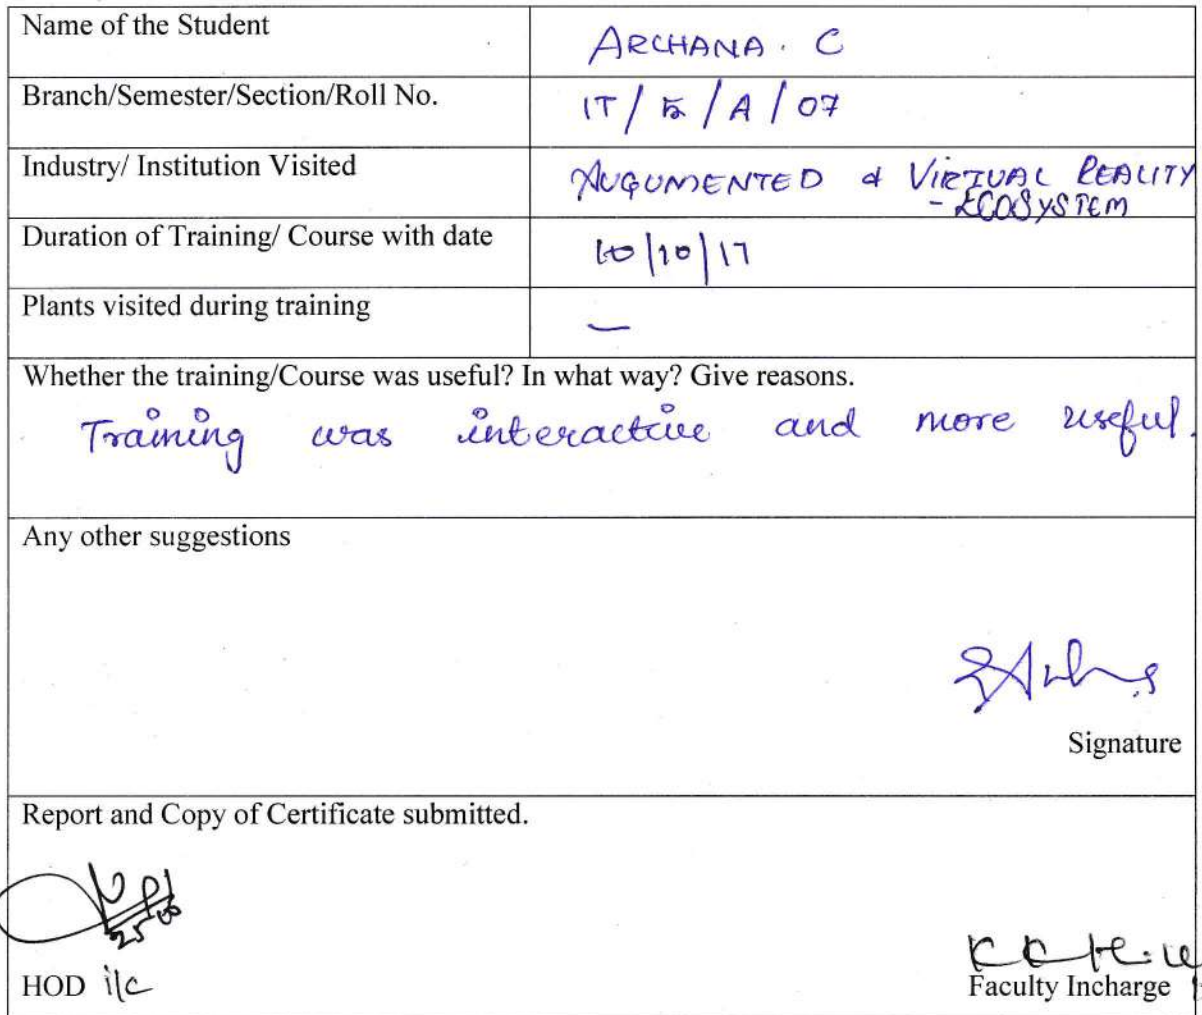 Name of the Student
ARCHANA. C
Branch/Semester/Section/Roll No.
IT / 5 / A / 07
Industry/ Institution Visited
AUGUMENTED & VIRTUAL REALITY
- ECOSYSTEM
Duration of Training/ Course with date
10/10/17
Plants visited during training
—
Whether the training/Course was useful? In what way? Give reasons.
Training was interactive and more useful.
Any other suggestions
Signature
Report and Copy of Certificate submitted.
HOD i/c
Faculty Incharge